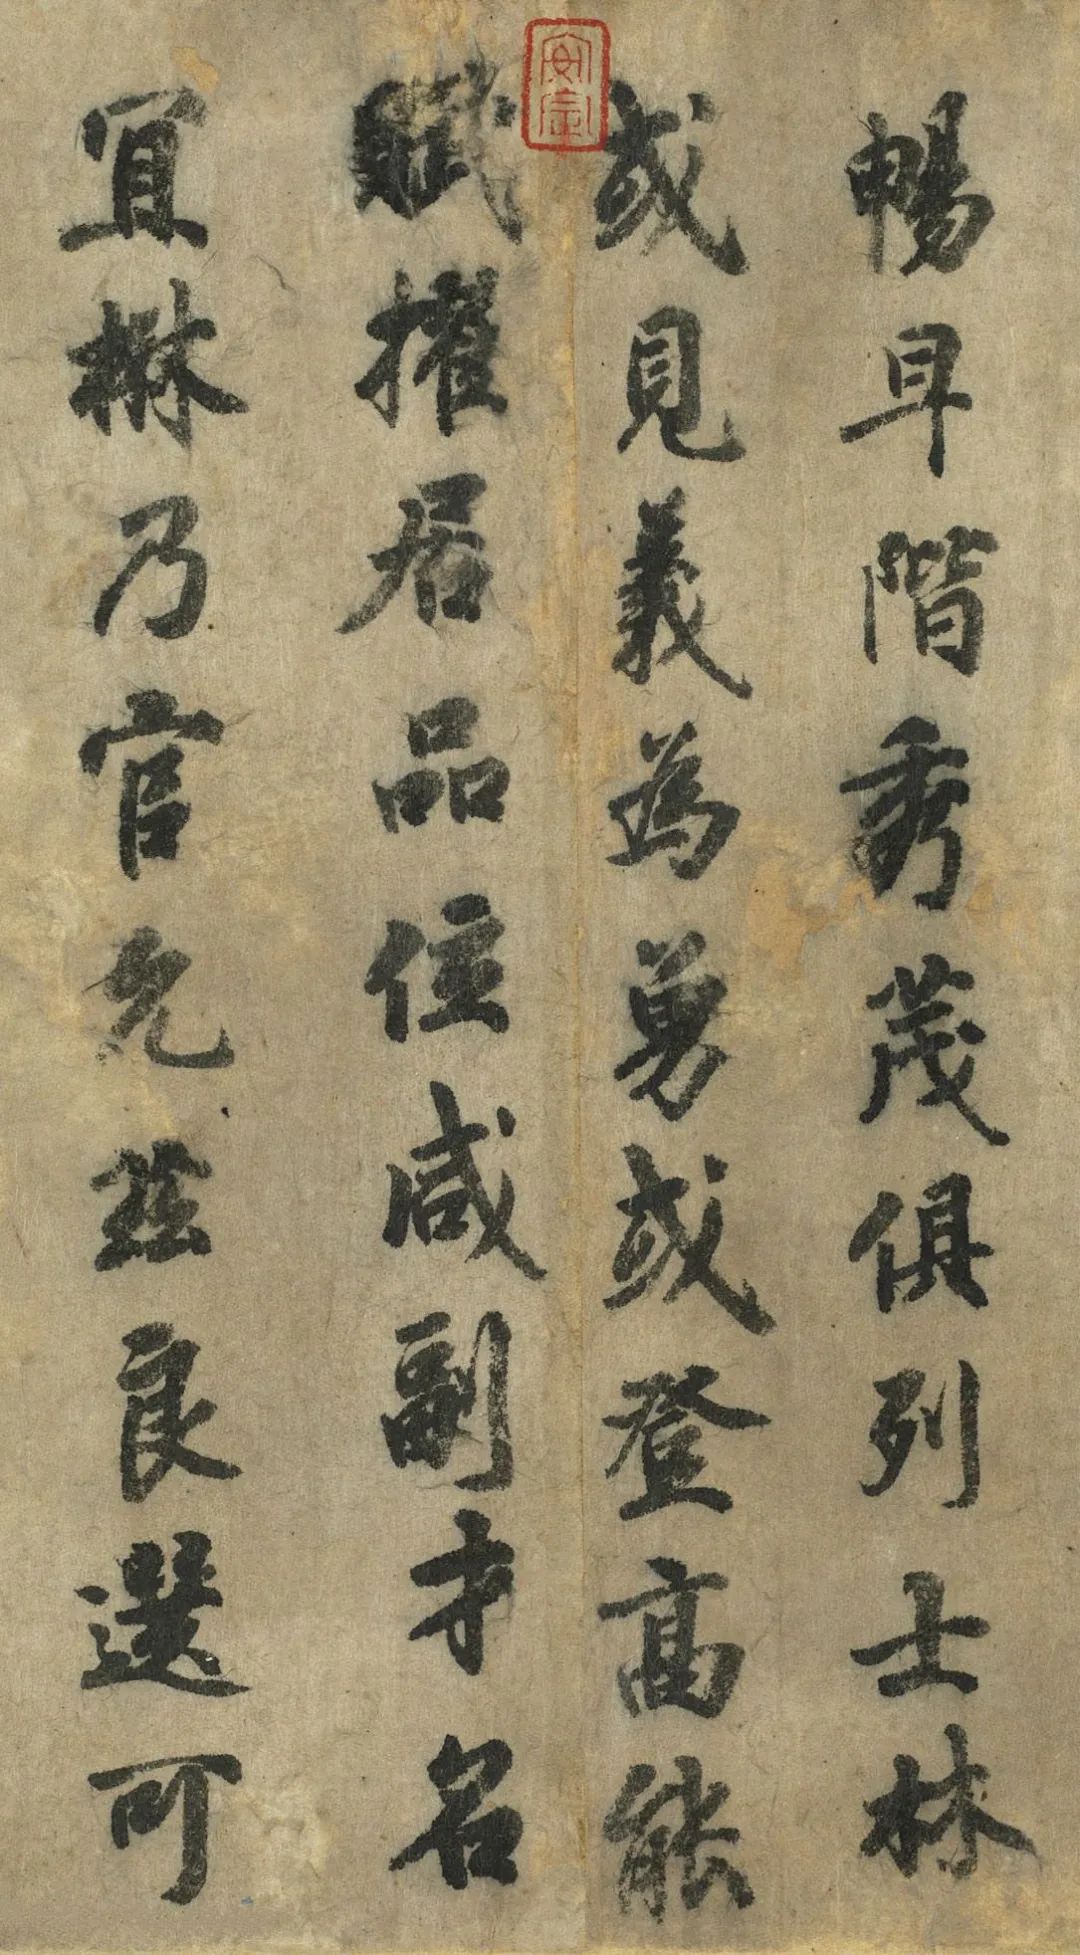 暢早階秀茂俱列士林
或見義為勇或登高能
賦擢居品位咸副才名
宜楙乃官允茲良選可